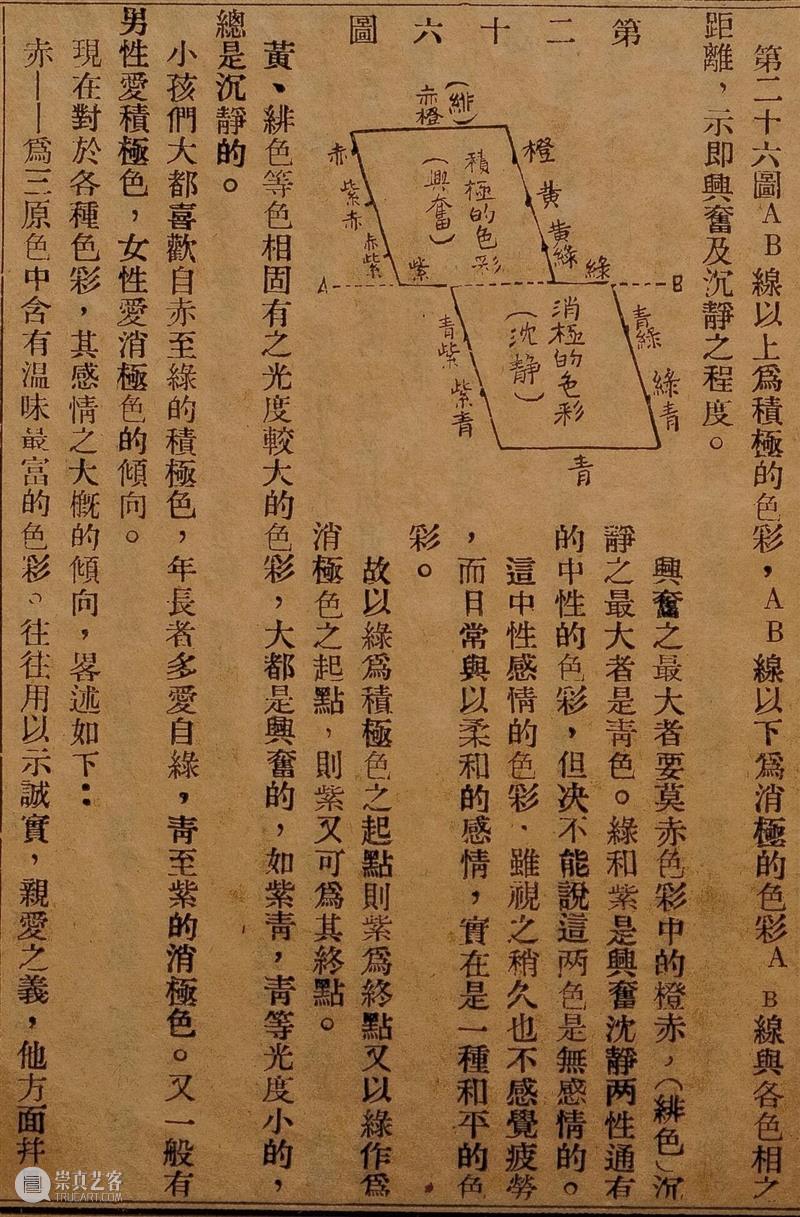 第二十六圖AB線以上爲積極的色彩，AB線以下爲消極的色彩AB線與各色相之
距離，示即興奮及沉靜之程度。
第二十六圖
(緋)
赤橙
赤
紫赤
赤紫
紫
橙
黃
黃綠
綠
積極的色彩
(興奮)
A
B
消極的色彩
(沈靜)
青紫
紫青
青綠
綠青
青
興奮之最大者要莫赤色彩中的橙赤，（緋色）沉
靜之最大者是靑色。綠和紫是興奮沈靜兩性通有
的中性的色彩，但决不能說這兩色是無感情的。
這中性感情的色彩、雖視之稍久也不感覺疲勞
，而日常與以柔和的感情，實在是一種和平的色
彩。
故以綠爲積極色之起點則紫爲終點又以綠作爲
消極色之起點，則紫又可爲其終點。
黃、緋色等色相固有之光度較大的色彩，大都是興奮的，如紫靑，靑等光度小的，
總是沉靜的。
小孩們大都喜歡自赤至綠的積極色，年長者多愛自綠，靑至紫的消極色。又一般有
男性愛積極色，女性愛消極色的傾向。
現在對於各種色彩，其感情之大槪的傾向，畧述如下：
赤——爲三原色中含有溫味最富的色彩。往往用以示誠實，親愛之義，他方面幷
崇真艺客
TRUEART.COM